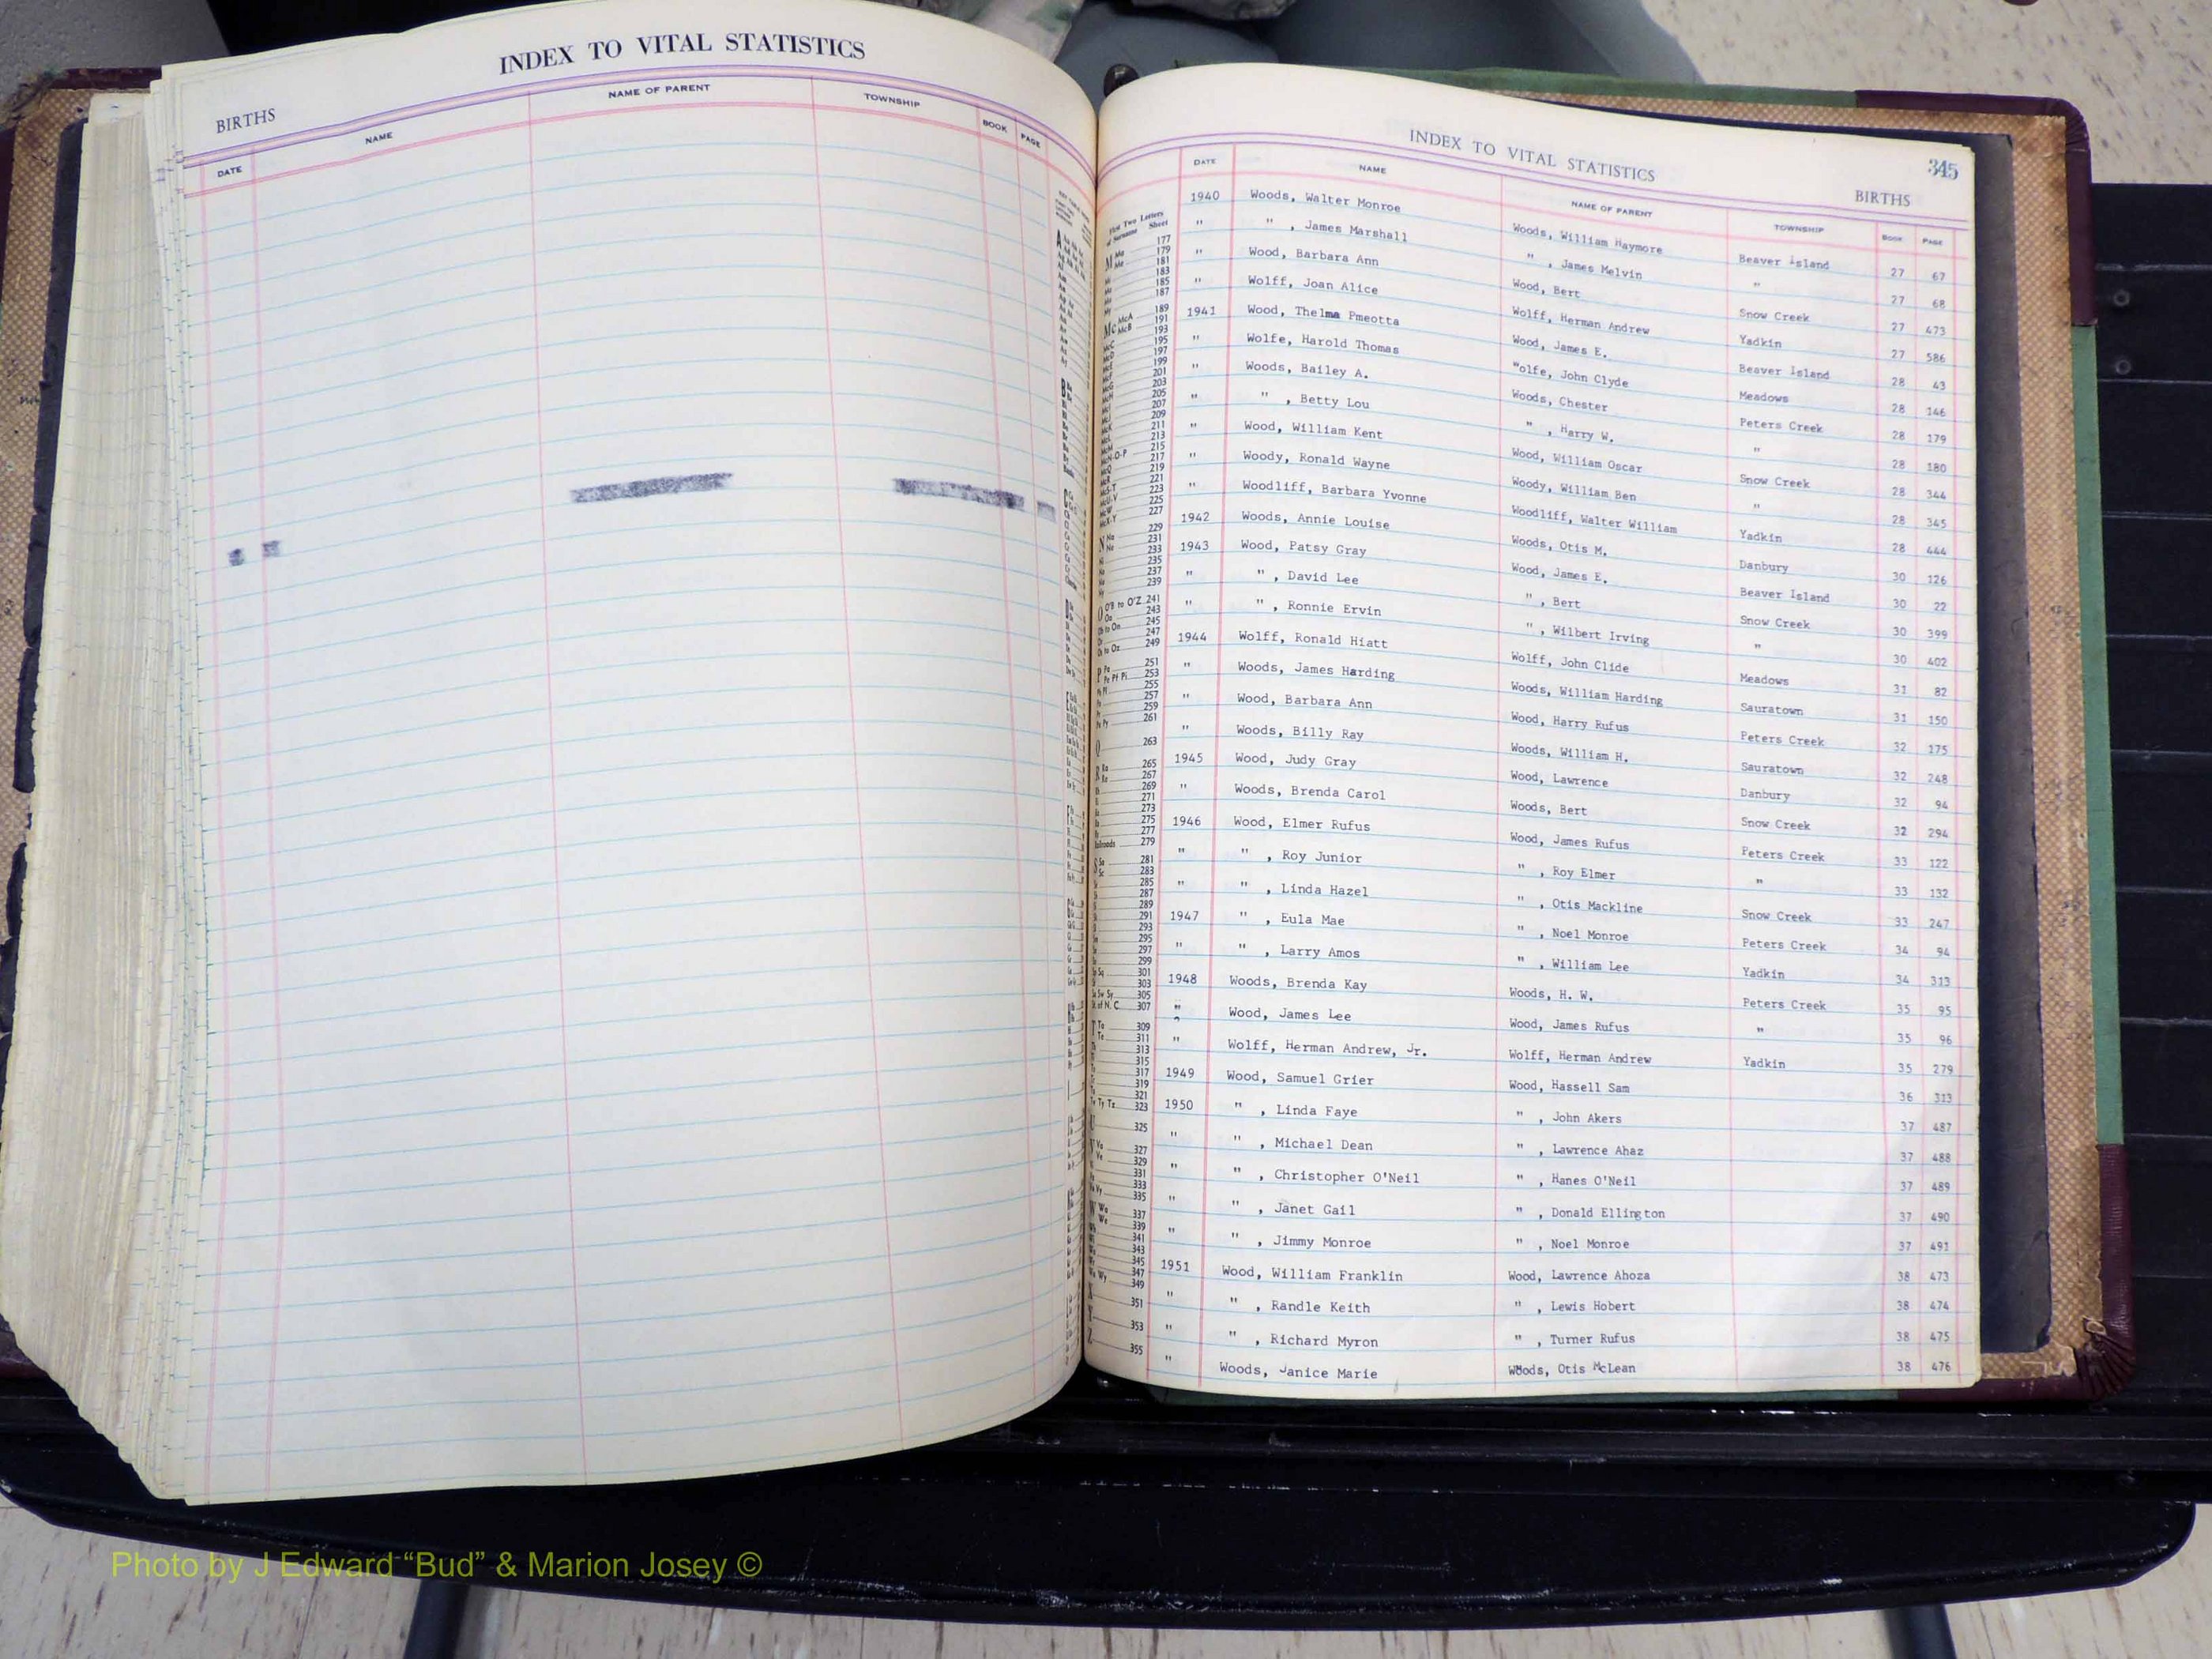 INDEX TO VITAL STATISTICS
BIRTHS
DATE NAME NAME OF PARENT TOWNSHIP BOOK PAGE
INDEX TO VITAL STATISTICS 345
BIRTHS
DATE NAME NAME OF PARENT TOWNSHIP BOOK PAGE
1940 Woods, Walter Monroe Woods, William Haymore Beaver Island 27 67
" " , James Marshall " , James Melvin " 27 68
" Wood, Barbara Ann Wood, Bert Snow Creek 27 473
" Wolff, Joan Alice Wolff, Herman Andrew Yadkin 27 586
1941 Wood, Thelma Pmeotta Wood, James E. Beaver Island 28 43
" Wolfe, Harold Thomas Wolfe, John Clyde Meadows 28 146
" Woods, Bailey A. Woods, Chester Peters Creek 28 179
" " , Betty Lou " , Harry W. " 28 180
" Wood, William Kent Wood, William Oscar Snow Creek 28 344
" Woody, Ronald Wayne Woody, William Ben " 28 345
" Woodliff, Barbara Yvonne Woodliff, Walter William Yadkin 28 444
1942 Woods, Annie Louise Woods, Otis M. Danbury 30 126
1943 Wood, Patsy Gray Wood, James E. Beaver Island 30 22
" " , David Lee " , Bert Snow Creek 30 399
" " , Ronnie Ervin " , Wilbert Irving " 30 402
1944 Wolff, Ronald Hiatt Wolff, John Clide Meadows 31 82
" Woods, James Harding Woods, William Harding Sauratown 31 150
" Wood, Barbara Ann Wood, Harry Rufus Peters Creek 32 175
" Woods, Billy Ray Woods, William H. Sauratown 32 248
1945 Wood, Judy Gray Wood, Lawrence Danbury 32 94
" Woods, Brenda Carol Woods, Bert Snow Creek 32 294
1946 Wood, Elmer Rufus Wood, James Rufus Peters Creek 33 122
" " , Roy Junior " , Roy Elmer " 33 132
" " , Linda Hazel " , Otis Mackline Snow Creek 33 247
1947 " , Eula Mae " , Noel Monroe Peters Creek 34 94
" " , Larry Amos " , William Lee Yadkin 34 313
1948 Woods, Brenda Kay Woods, H. W. Peters Creek 35 95
" Wood, James Lee Wood, James Rufus " 35 96
" Wolff, Herman Andrew, Jr. Wolff, Herman Andrew Yadkin 35 279
1949 Wood, Samuel Grier Wood, Hassell Sam 36 313
1950 " , Linda Faye " , John Akers 37 487
" " , Michael Dean " , Lawrence Ahaz 37 488
" " , Christopher O'Neil " , Hanes O'Neil 37 489
" " , Janet Gail " , Donald Ellington 37 490
" " , Jimmy Monroe " , Noel Monroe 37 491
1951 Wood, William Franklin Wood, Lawrence Ahoza 38 473
" " , Randle Keith " , Lewis Hobert 38 474
" " , Richard Myron " , Turner Rufus 38 475
" Woods, Janice Marie Woods, Otis McLean 38 476
Photo by J Edward “Bud” & Marion Josey ©